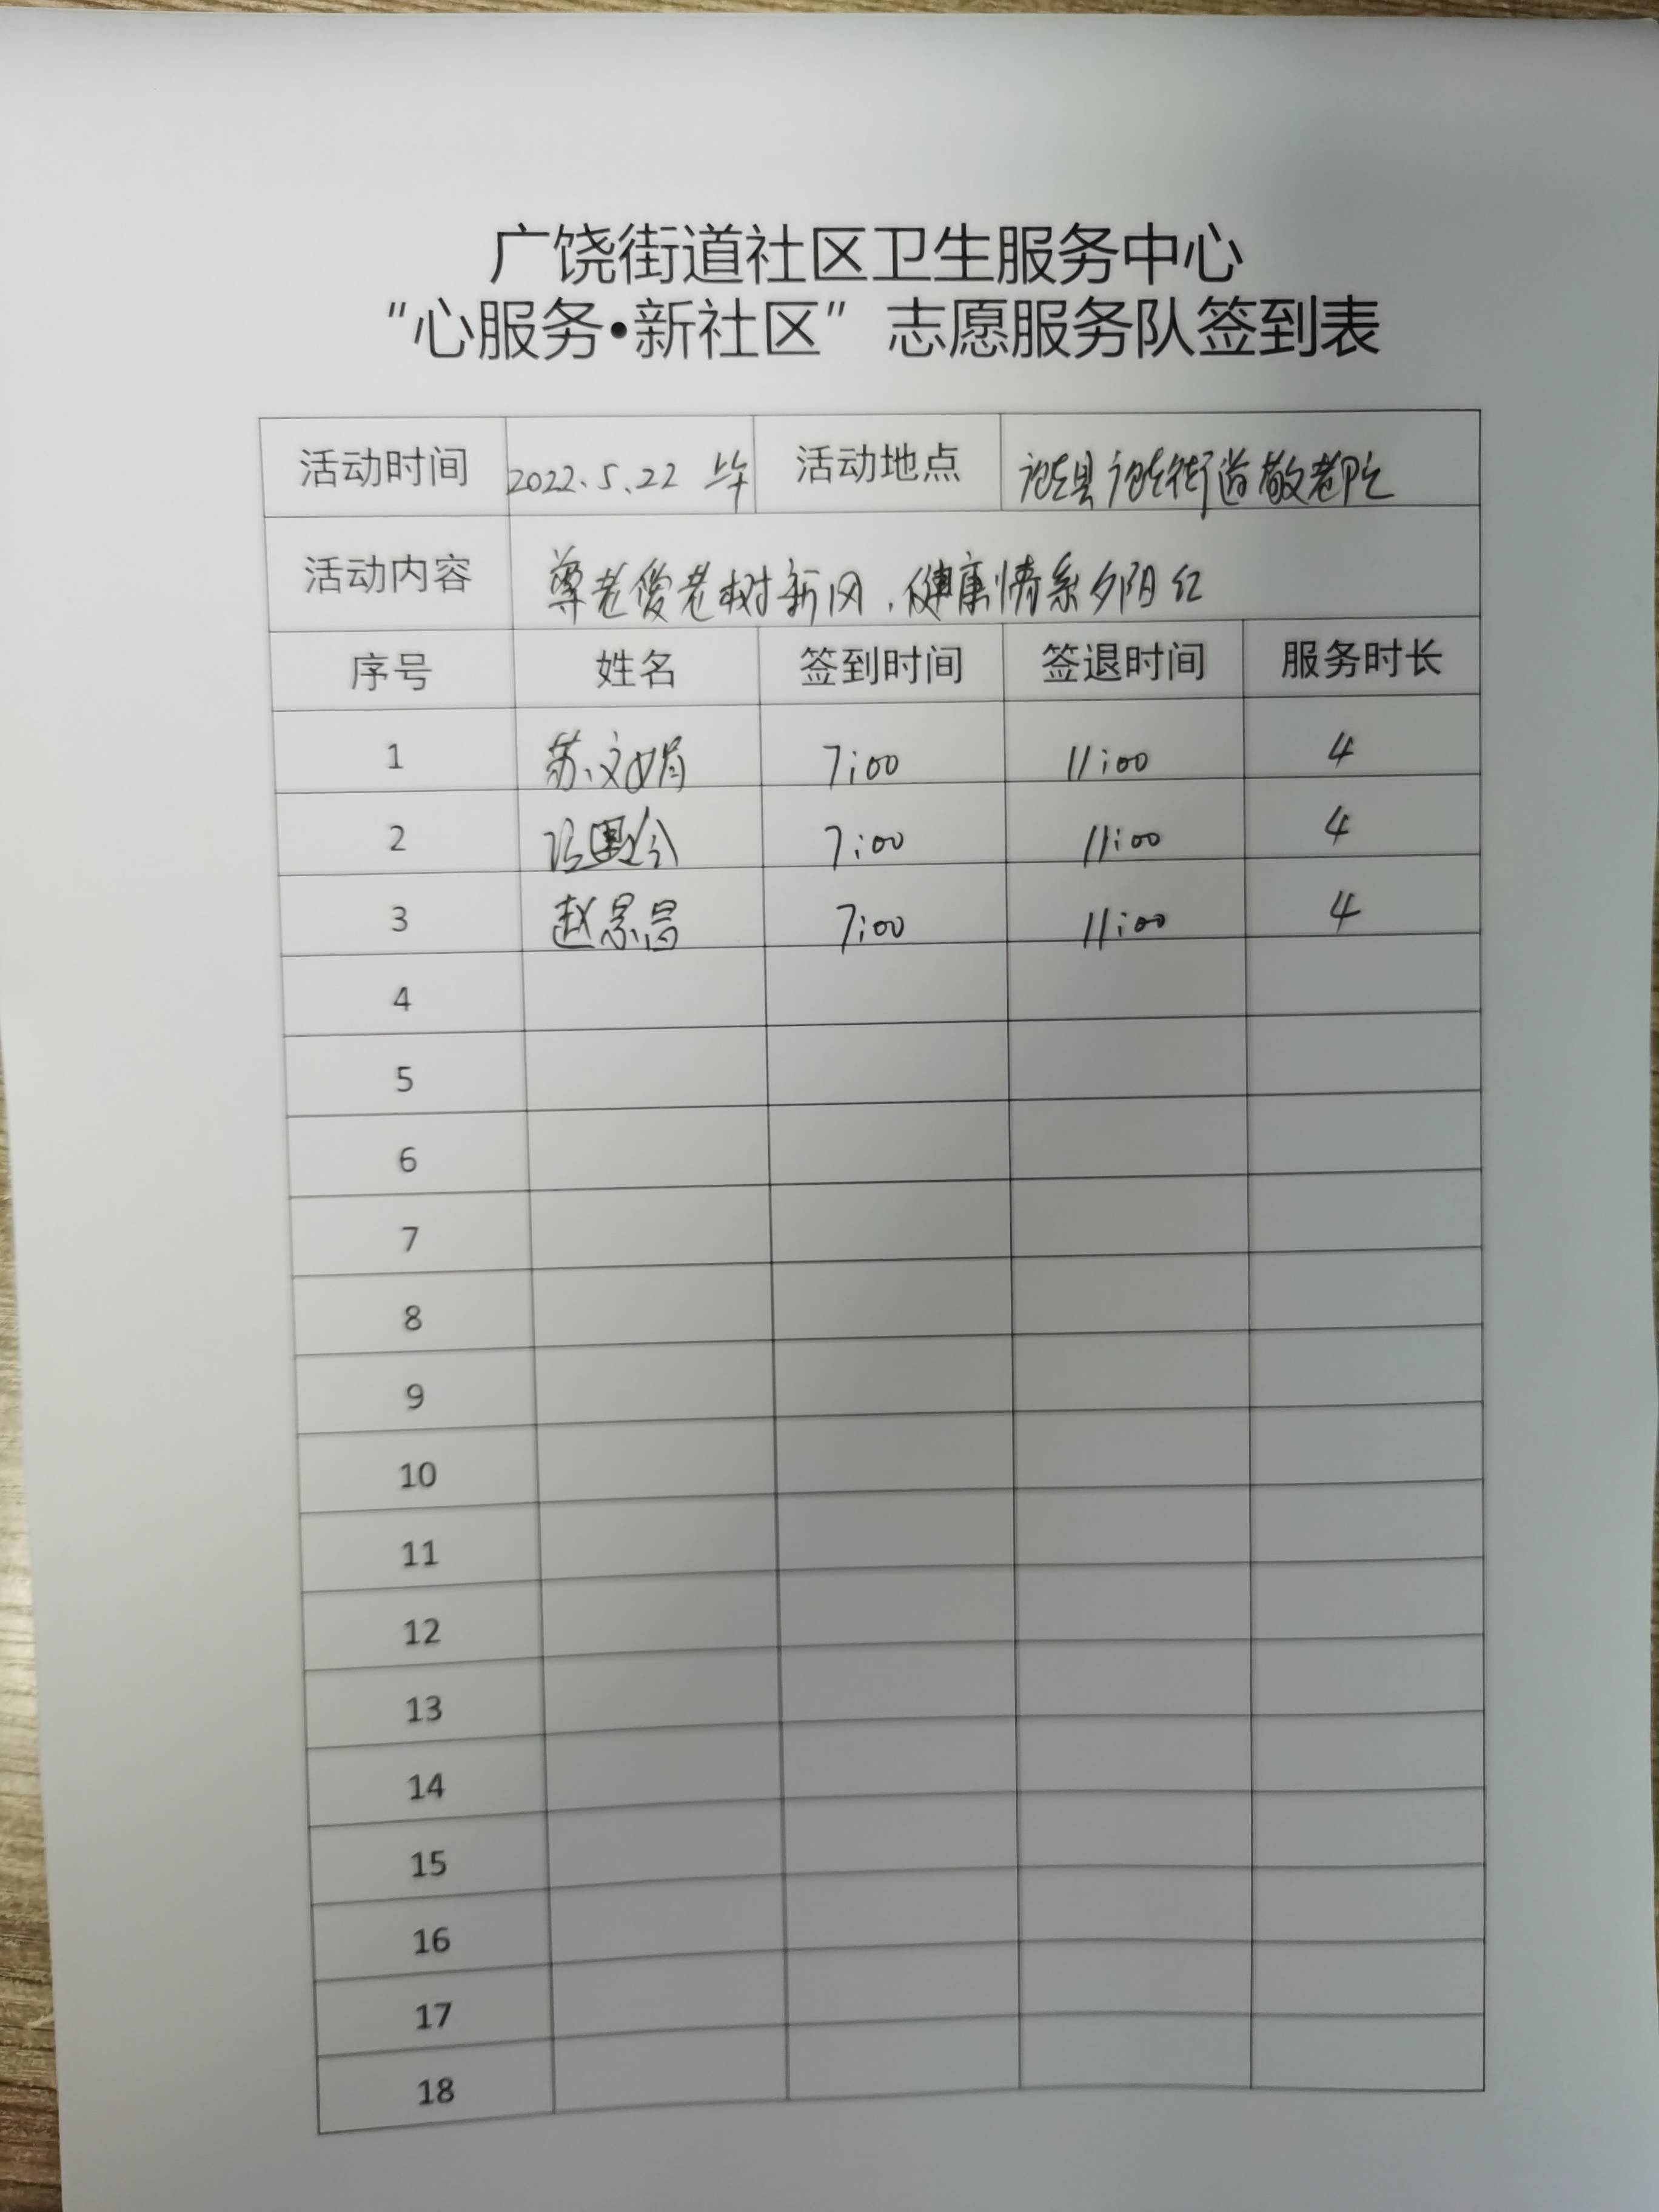 广饶街道社区卫生服务中心
“心服务•新社区”志愿服务队签到表
活动时间 2022.5.22 上午 活动地点 广饶县广饶街道敬老院
活动内容 尊老爱老树新风，健康情系夕阳红
序号 姓名 签到时间 签退时间 服务时长
1 苏文娟 7:00 11:00 4
2 7:00 11:00 4
3 赵景昌 7:00 11:00 4
4
5
6
7
8
9
10
11
12
13
14
15
16
17
18